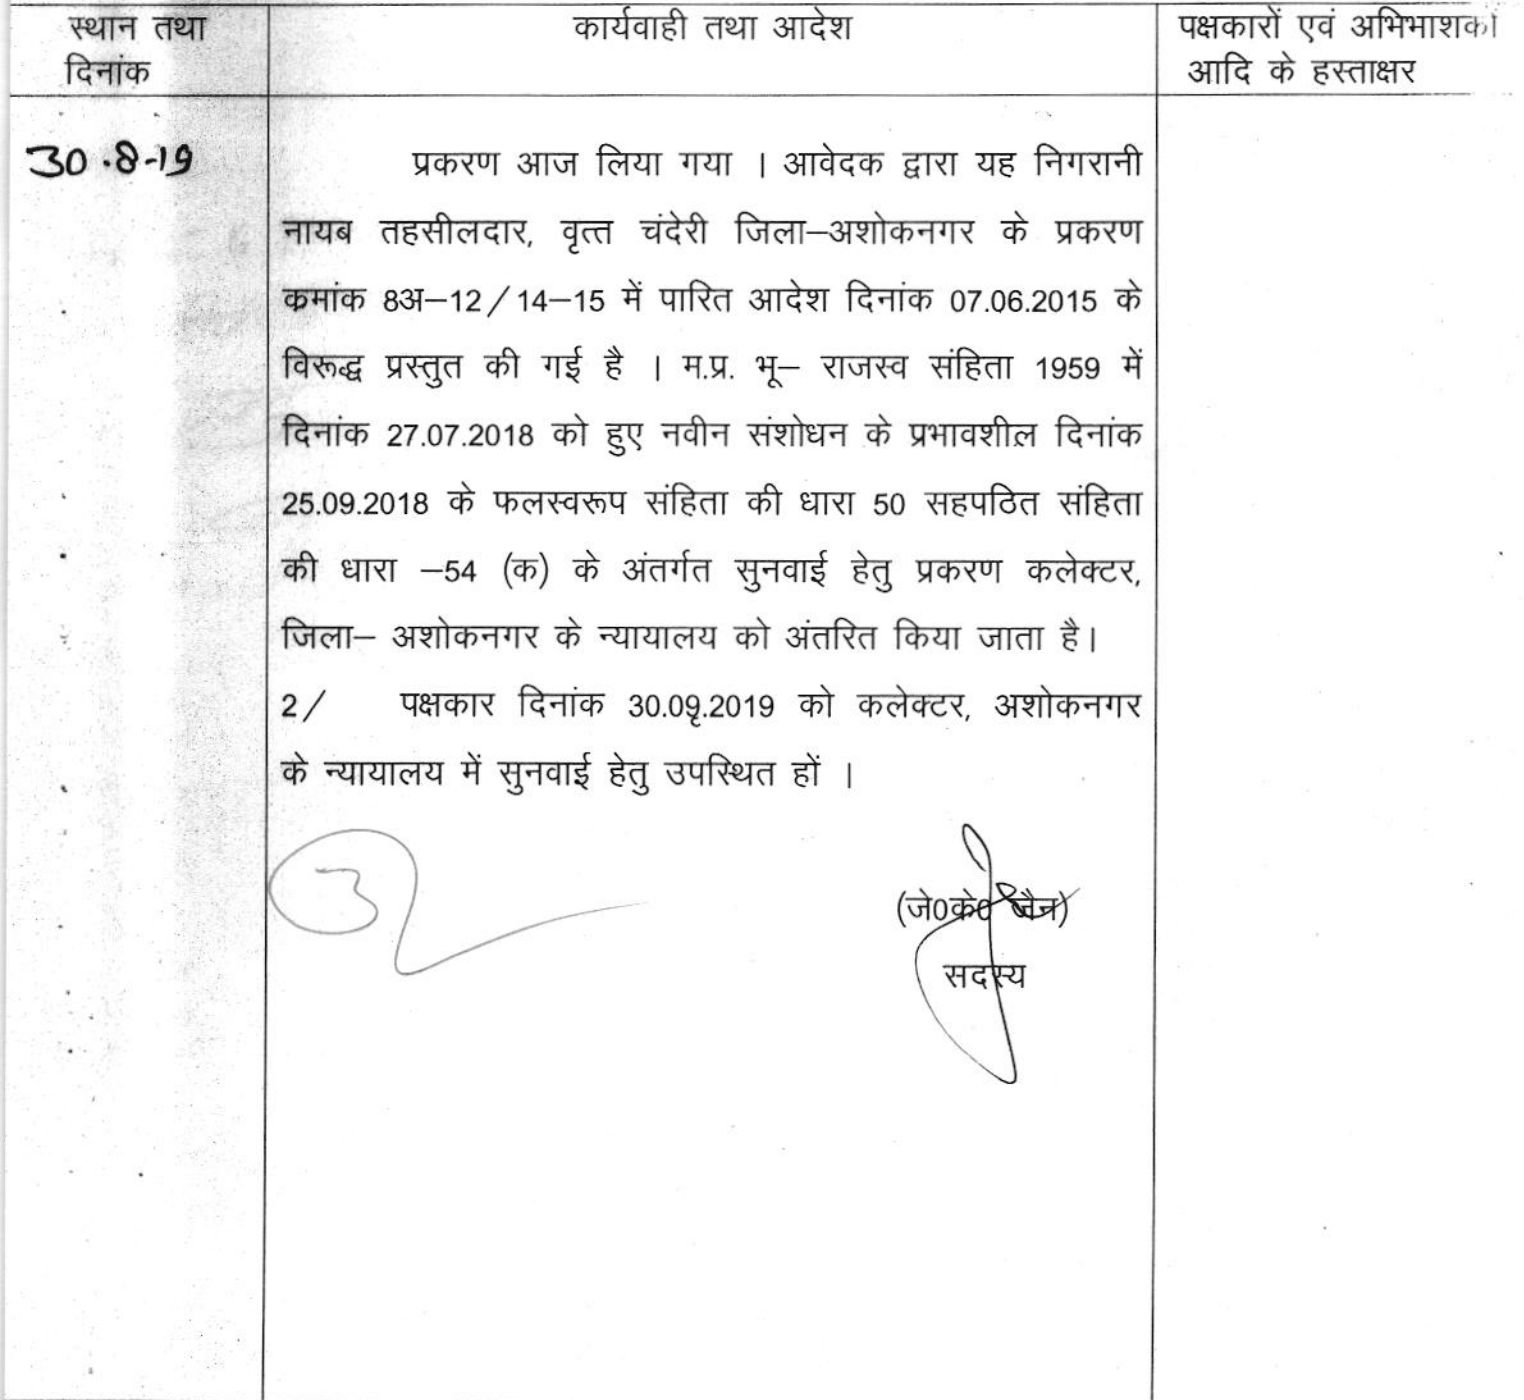 स्थान तथा
दिनांक
कार्यवाही तथा आदेश
पक्षकारों एवं अभिभाशकों
आदि के हस्ताक्षर
30.8-19
प्रकरण आज लिया गया । आवेदक द्वारा यह निगरानी
नायब तहसीलदार, वृत्त चंदेरी जिला–अशोकनगर के प्रकरण
कमांक 8अ–12/14–15 में पारित आदेश दिनांक 07.06.2015 के
विरूद्ध प्रस्तुत की गई है । म.प्र. भू– राजस्व संहिता 1959 में
दिनांक 27.07.2018 को हुए नवीन संशोधन के प्रभावशील दिनांक
25.09.2018 के फलस्वरूप संहिता की धारा 50 सहपठित संहिता
की धारा –54 (क) के अंतर्गत सुनवाई हेतु प्रकरण कलेक्टर,
जिला– अशोकनगर के न्यायालय को अंतरित किया जाता है।
2/ पक्षकार दिनांक 30.09.2019 को कलेक्टर, अशोकनगर
के न्यायालय में सुनवाई हेतु उपस्थित हों ।
(जे0के0 जैन)
सदस्य